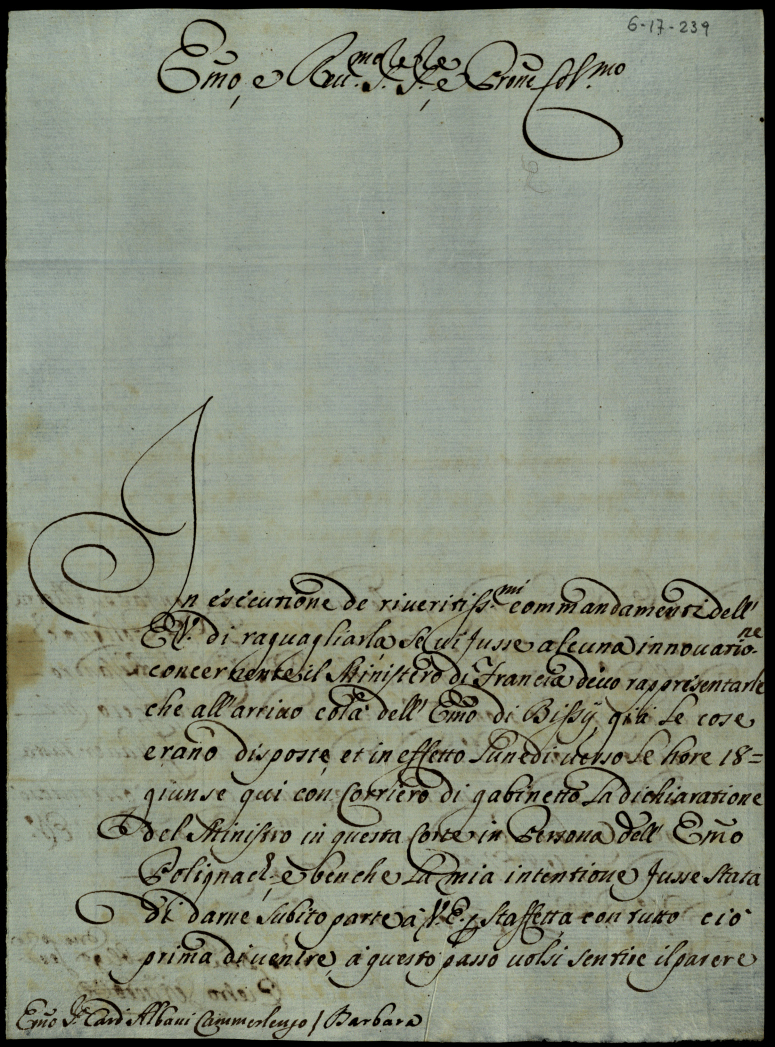 6-17-239
Emo, e Reu.mo S.re S.re e Prone Col.mo
In essecutione de riueritiss.mi commandamenti dell'
E.V. di raguagliarla se ui fusse alcuna innouatio.ne
concernente il Ministero di Francia deuo rappresentarle
che all'arriuo colà dell' Emo di Bissÿ già le cose
erano disposte, et in effetto Lunedi uerso le hore 18=
giunse qui con Corriero di gabinetto la dichiaratione
del Ministro in questa Corte in Persona dell' Emo
Polignach, e benche la mia intentione fusse stata
di darne subito parte à V.E. p staffetta con tutto ciò
prima di uenire à questo passo uolsi sentire il parere
Emo S.r Card Albani Camerlengo / Barbara